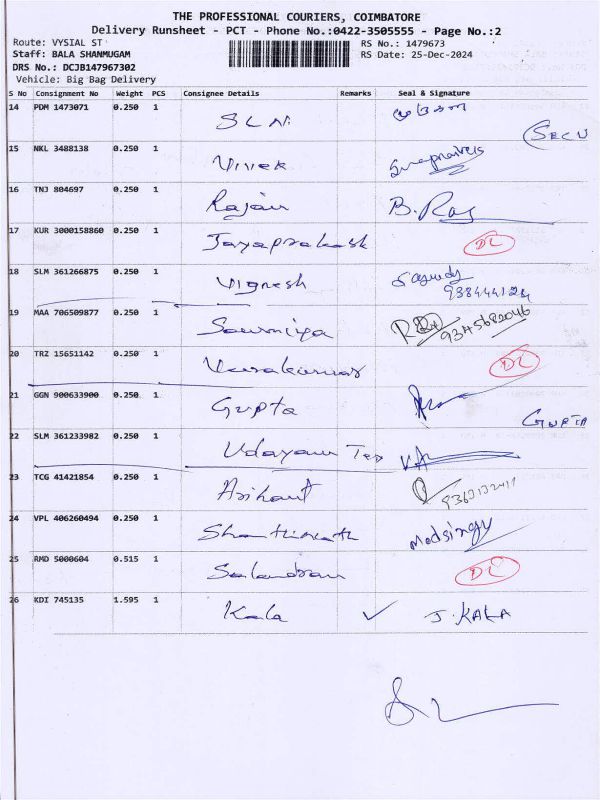 THE PROFESSIONAL COURIERS, COIMBATORE
Delivery Runsheet - PCT - Phone No.:0422-3505555 - Page No.:2
Route: VYSIAL ST
RS No.: 1479673
Staff: BALA SHANMUGAM
RS Date: 25-Dec-2024
DRS No.: DCJB147967302
Vehicle: Big Bag Delivery
S No Consignment No Weight PCS Consignee Details Remarks Seal & Signature
14 PDM 1473071 0.250 1 SLN
SECU
15 NKL 3488138 0.250 1 Vivek
16 TNJ 804697 0.250 1 Rajan B. Raj
17 KUR 3000158860 0.250 1 Jayaprakash DL
18 SLM 361266875 0.250 1 Vignesh
19 MAA 706509877 0.250 1 Sowmiya 9345682046
20 TRZ 15651142 0.250 1 DL
21 GGN 900633900 0.250 1 Gupta
GUPTA
22 SLM 361233982 0.250 1 Udayam Tex
23 TCG 41421854 0.250 1 Arihant
24 VPL 406260494 0.250 1 Shanthinath
25 RMD 5000604 0.515 1 DL
26 KDI 745135 1.595 1 Kala J. KALA